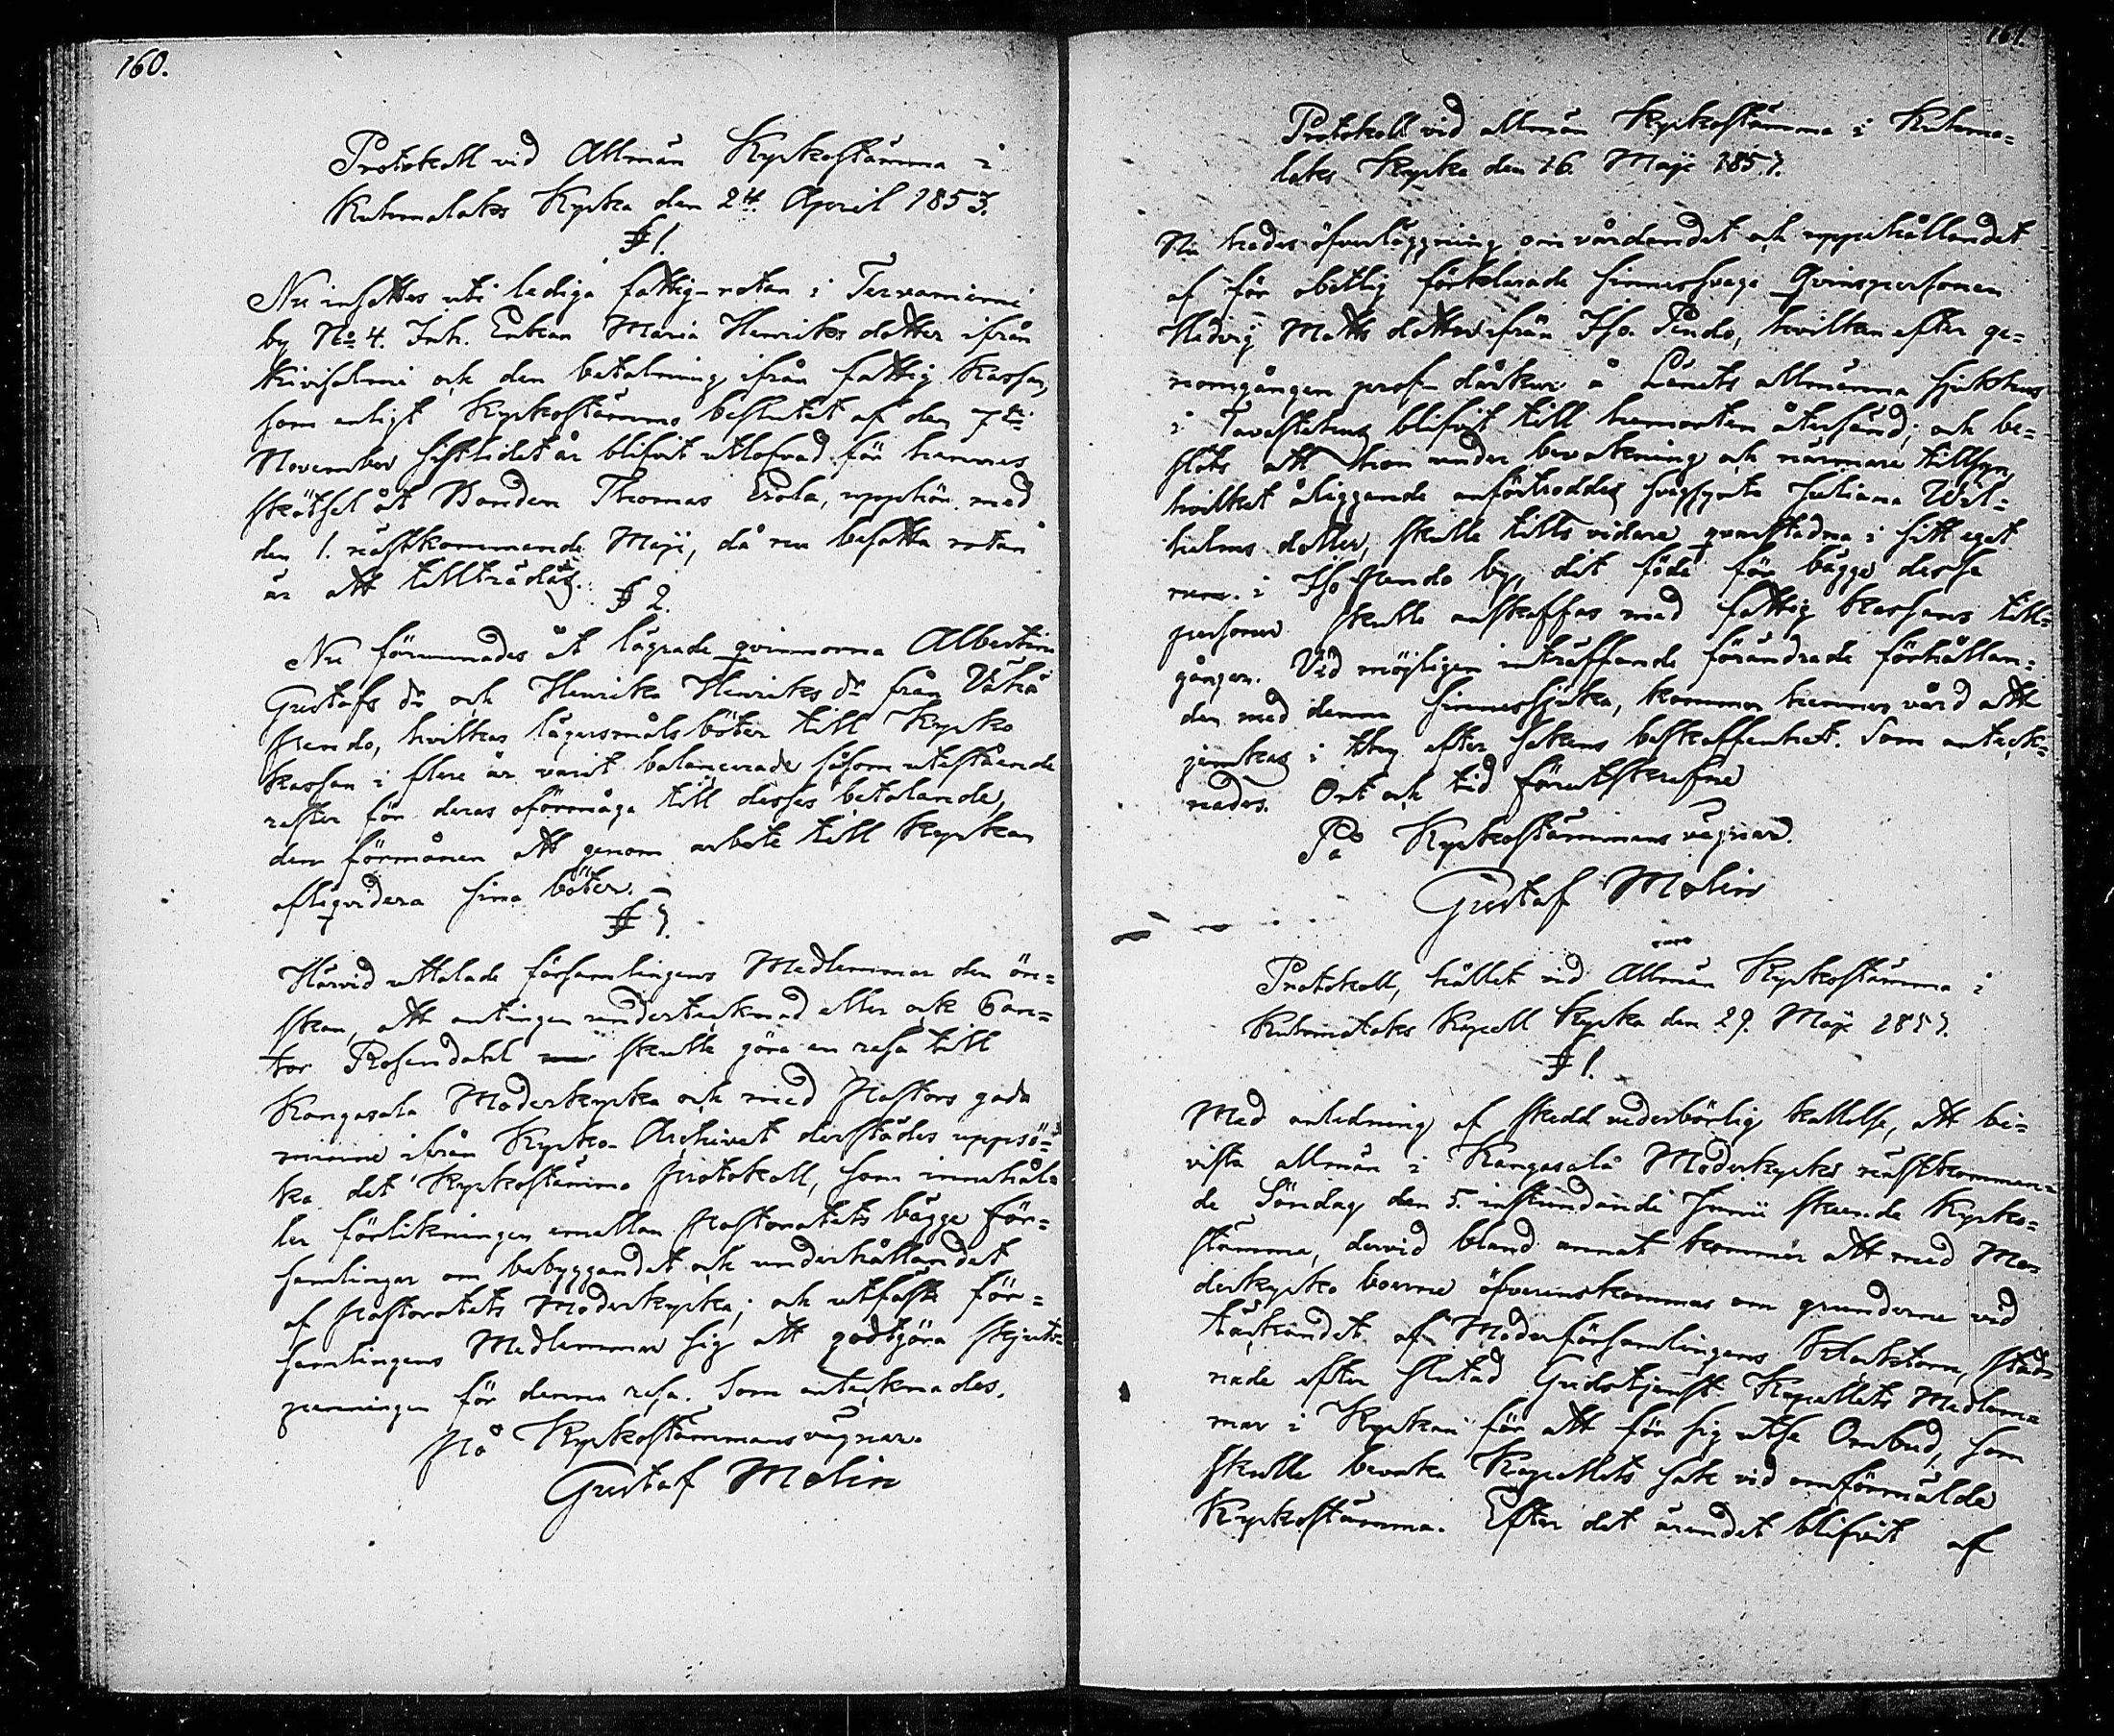 160.
Protokoll vid Allmän Kyrkostämma i
Kuhmalaks Kyrka den 24. April 1853.
§ 1.
Nu insattes uti lediga fattig-rotan i Tervaniemi
by No 4. Inh. Enkan Maria Henriks dotter ifrån
Kivisalmi och den betalning ifrån fattig Kassan,
som enligt Kyrkostämmo beslutet af den 7de
November sistlidet år blifvit utlofvad för hennes
skötsel åt Bonden Thomas Erola, upphör med
den 1. nästkommande Maji, då nu besatta rotan
är att tillträdas.
§ 2.
Nu förunnades åt lägrade qvinnorna Albertina
Gustafs dr och Henrika Henriks dr från Vähä
Pendo, hvilkas lägersmålsböter till Kyrko
kassan i flere år varit balancerade såsom utestående
rester för deras oförmåga till desses betalande,
den förmånen att genom arbete till Kyrkan
afliqvidera sina böter.
§ 3.
Härvid uttalade församlingens Medlemmar den ön=
skan, att antingen undertecknad eller ock Can=
tor Rosendahl skulle göra en resa till
Kangasala Moderkyrka och med Pastors goda
minne ifrån Kyrko-Archivet derstädes uppsö=
ka det Kyrkostämmo Protokoll, som innehål=
ler förlikningen emellan Pastoratets bägge för=
samlingar om bebyggandet och underhållandet
af Pastoratets Moderkyrka; och utfäste för=
samlingens Medlemmar sig att godtgöra skjuts=
penningen för denna resa. Som antecknades.
På Kyrkostämmans vägnar.
Gustaf Molin
161.
Protokoll vid allmän Kyrkostämma i Kuhma=
laks Kyrka den 16. Maji 1853.
Nu hades öfverläggning om vårdandet och uppehållandet
af för obotlig förklarade sinnessvaga Qvinspersonen
Hedvig Matts dotter ifrån Iso Pendo, hvilken efter ge=
nomgången prof-dårkur å Länets allmänna sjukhus
i Tavastehus blifvit till hemorten återsänd; och be=
slöts att hon under bevakning och närmare tillsyn,
hvilket åliggande anförtroddes svagsynta Juliana Wil=
helms dotter, skulle tills vidare qvarstadna i sitt eget
rum i Iso Pendo by, dit föda för bägge dessa
personer skulle anskaffas med fattig kassans till=
gångar. Vid möjligen inträffande förändrade förhållan=
den med denna sinnessjuka, kommer hennes vård att
jemkas i thy efter sakens beskaffenhet. Som anteck=
nades. Ort och tid förutskrefne
På Kyrkostämmans vägnar.
Gustaf Molin
Protokoll, hållet vid Allmän Kyrkostämma i
Kuhmalaks Kapell Kyrka den 29. Maji 1853.
§ 1.
Med anledning af skedd vederbörlig kallelse, att bi=
vista allmän i Kangasala Moderkyrka nästkomman=
de Söndag den 5. instundande Junii skeende Kyrko=
stämma, dervid bland annat kommer att med Mo=
derkyrko boerne öfverenskommas om grunderne vid
täckandet af Moderförsamlingens Klockstorn, stad=
nade efter slutad Gudstjenst Kapellets Medlem=
mar i Kyrkan för att för sig utse Ombud, som
skulle bevaka Kapellets sak vid omförmälde
Kyrkostämma. Efter det ärendet blifvit af